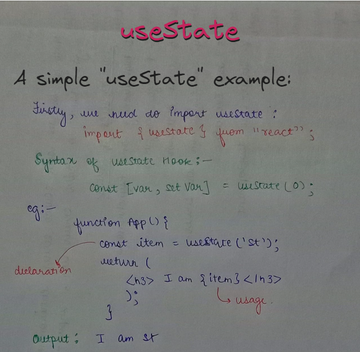 useState
A simple "useState" example:
Firstly, we need do import useState :
import { useState } from "react";
Syntax of useState Hook :-
const [var, set Var] = useState (0);
eg:-
function App() {
const item = useState ('St');
declaration
return (
<h3> I am {item} </h3>
);
usage.
}
Output : I am St